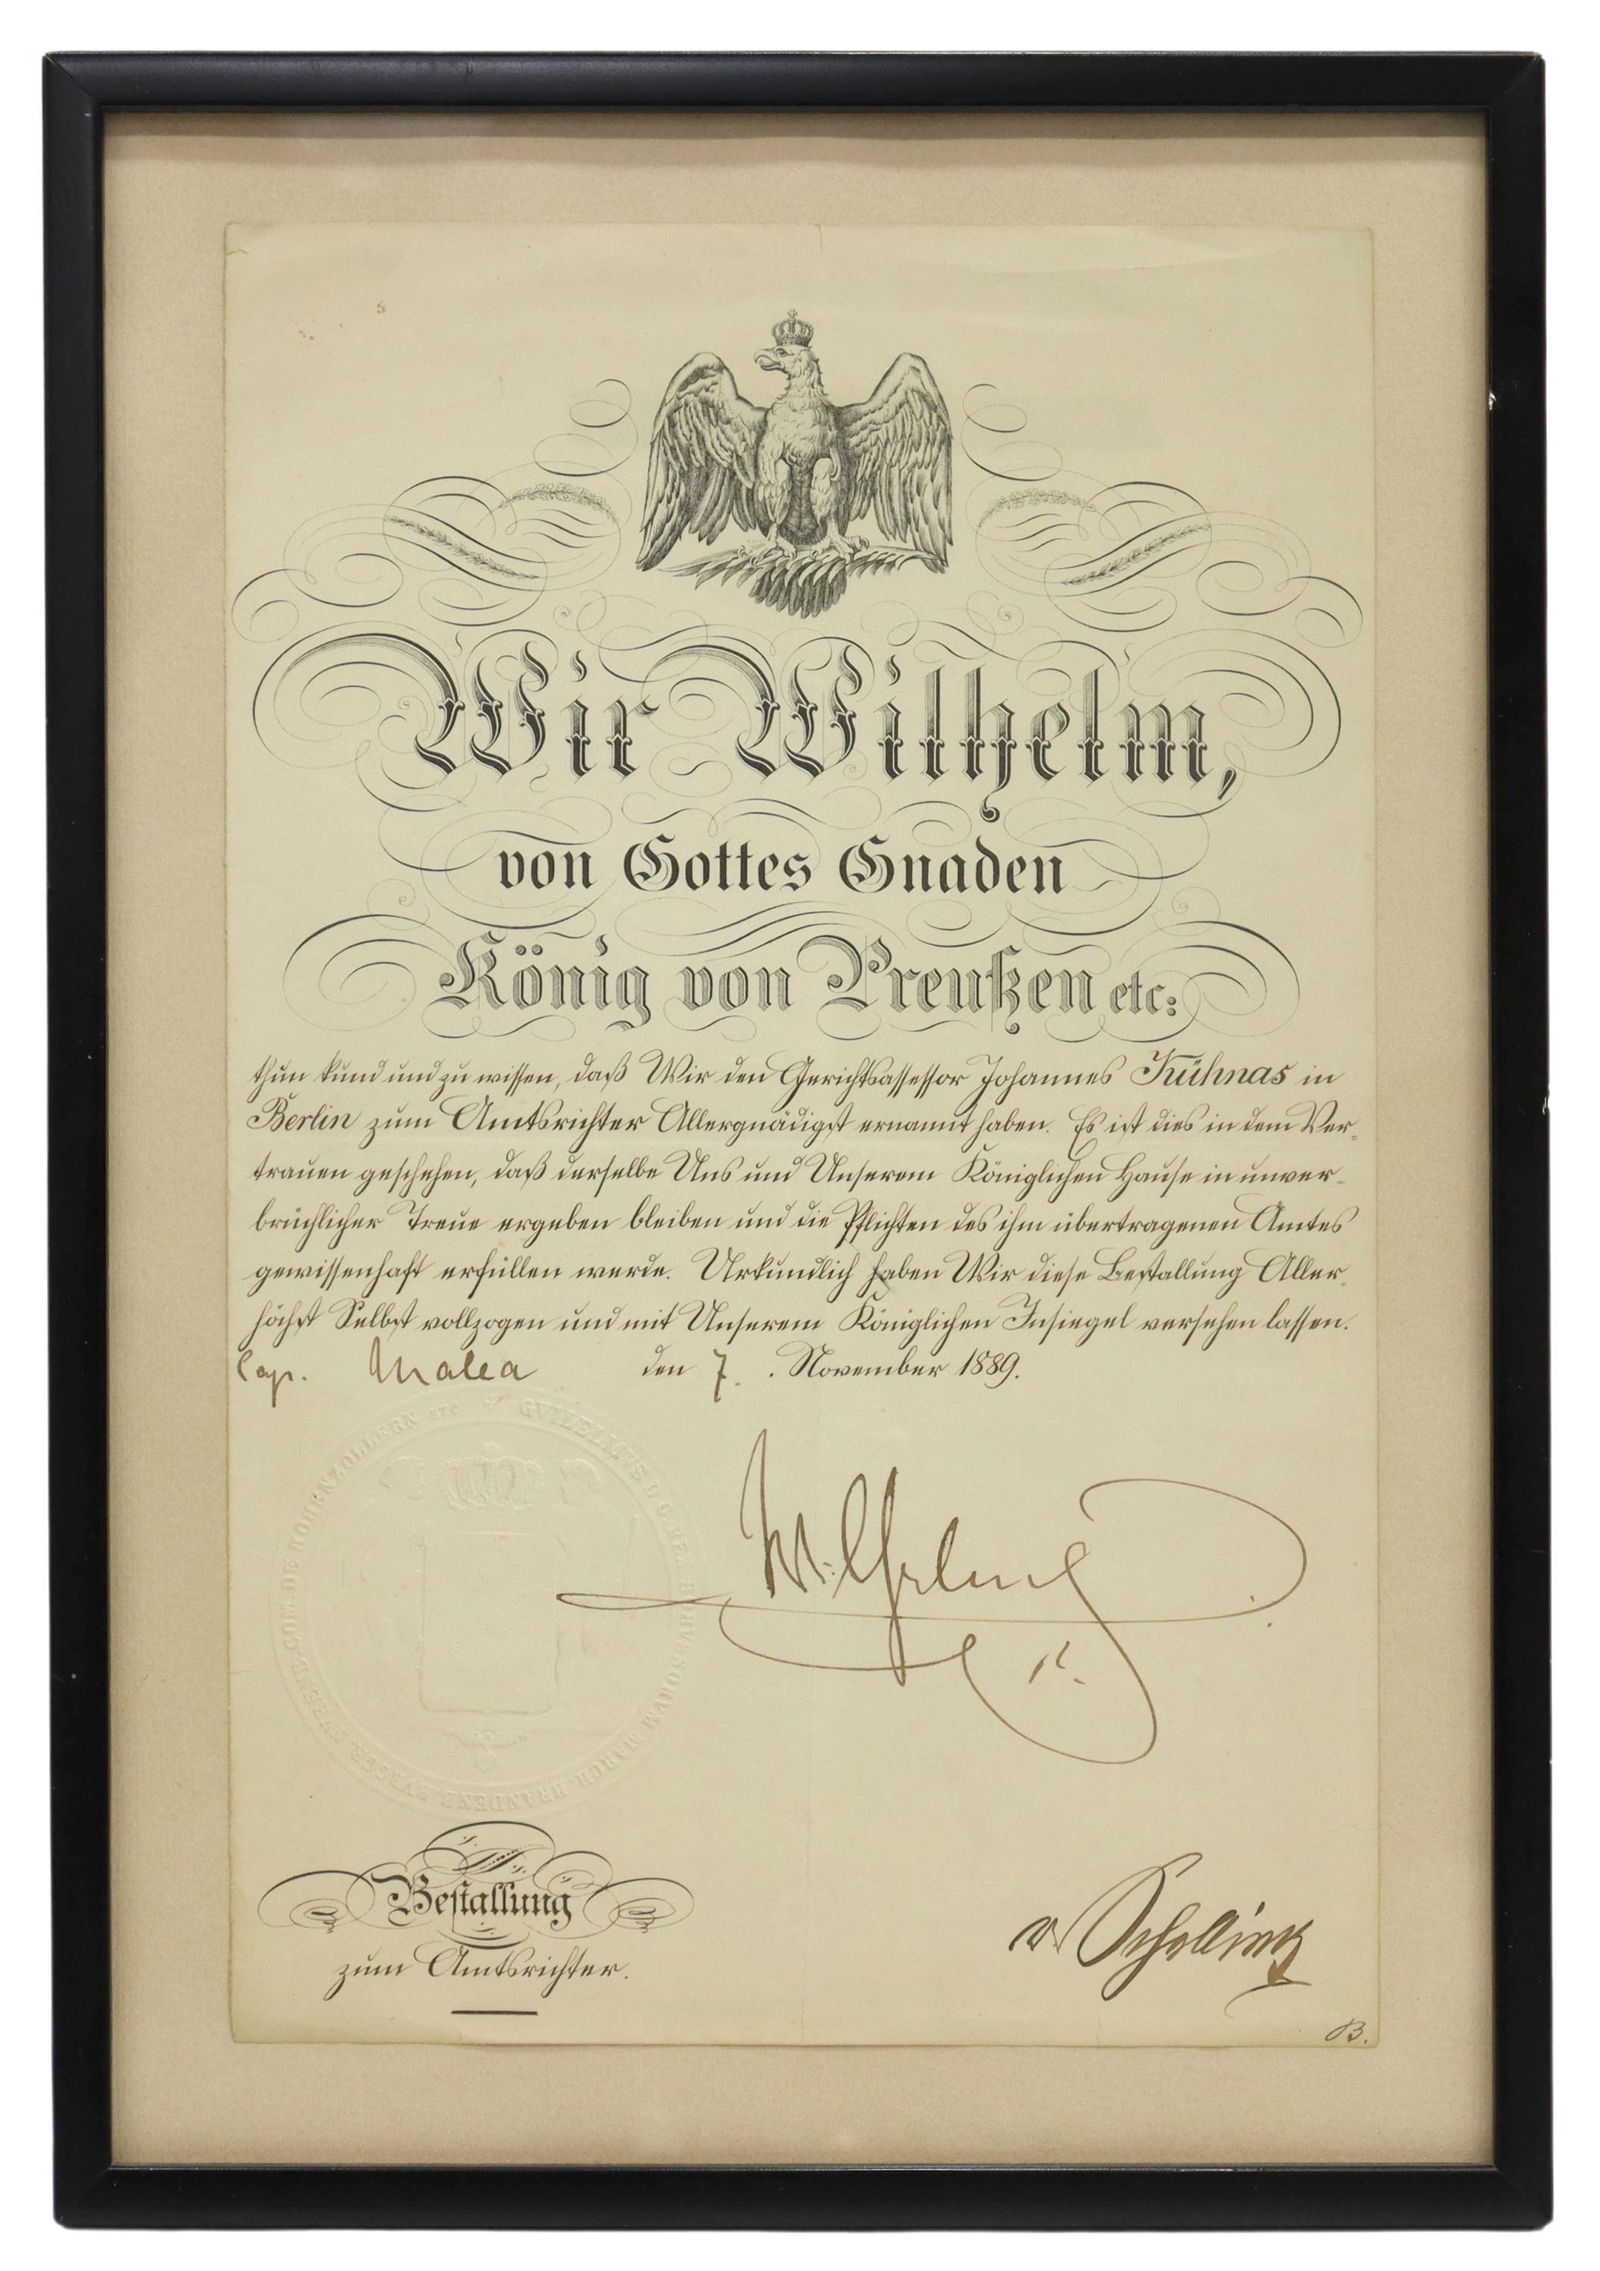 Wir Wilhelm,
von Gottes Gnaden
König von Preußen etc:
thun kund und zu wissen, daß Wir den Gerichtsassessor Johannes Kühnas in
Berlin zum Amtsrichter Allergnädigst ernannt haben. Es ist dies in dem Ver-
trauen geschehen, daß derselbe Uns und Unserem Königlichen Hause in unver-
brüchlicher Treue ergeben bleiben und die Pflichten des ihm übertragenen Amtes
gewissenhaft erfüllen werde. Urkundlich haben Wir diese Bestallung Aller-
höchst Selbst vollzogen und mit Unserem Königlichen Insiegel versehen lassen.
Cap. Malea den 7. November 1889.
Wilhelm
R.
Bestallung
zum Amtsrichter.
v Schelling
B.